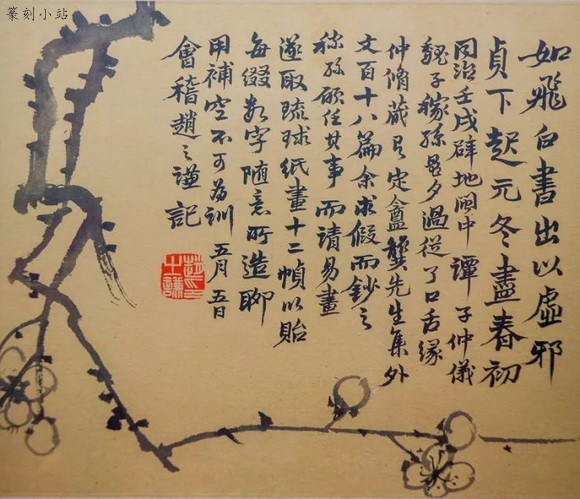 篆刻小站
如飛白書出以虛邪
貞下起元冬盡春初
同治壬戌辟地閩中譚子仲儀
魏子稼孫晨夕過從了口舌緣
仲脩藏有定盦龔先生集外
文百十八篇余求假而鈔之
稼孫願任其事而請易畫
遂取琉球紙畫十二幀以貽
每綴數字隨意所造聊
用補空不可為訓 五月五日
會稽趙之謙記